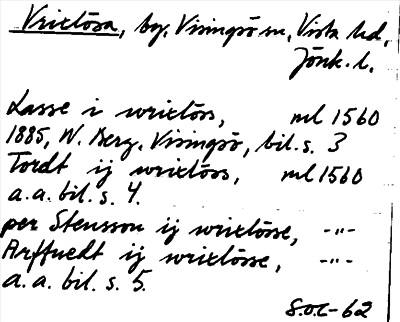 Vrixtösa, by, Visingsö sn, Vista hd,
Jönk. l.
Lasse i wrixtöss, ml 1560
1885, W. Berg, Visingsö, bil. s. 3
Tordt ij wrixtöss, ml 1560
a.a. bil. s. 4.
per Stensson ij wrixtösse, -"-
Arffuedt ij wrixtösse, -"-
a.a. bil. s. 5.
S.O.C-62